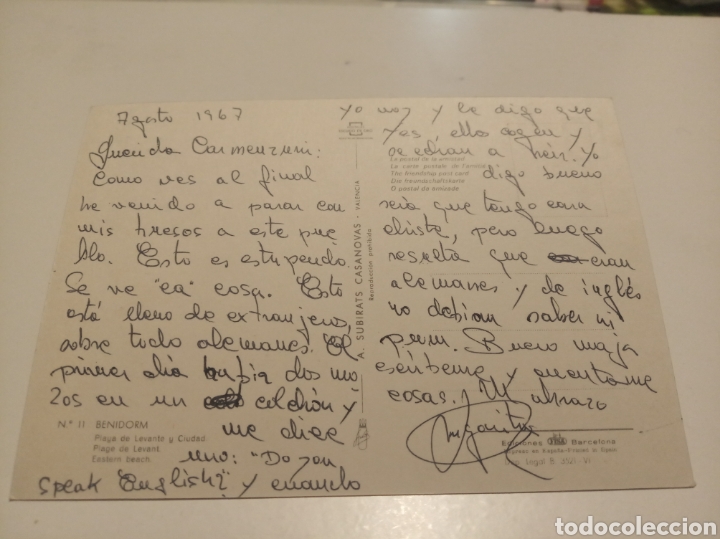 Agosto 1967
Querida Carmenzuni:
Como ves al final
he venido a parar con
mis huesos a este pue
blo. Esto es estupendo.
Se ve "ca" cosa. Esto
está lleno de extranjeros,
sobre todo alemanes. El
primer día había dos mo
zos en un colchón y
me dice
uno: "Do you
speak English?" y cuando
yo voy y le digo que
Yes, ellos cogen y
se echan a reir. Yo
digo bueno
será que tengo cara
chiste, pero luego
resulta que eran
alemanes y de inglés
no debian saber ni
pum. Bueno maja
escribeme y cuentame
cosas. Un abrazo
La postal de la amistad
La carte postale de l'amitié
The friendship post card
Die freundschaftskarte
O postal da amizade
A. SUBIRATS CASANOVAS - VALENCIA
Reproducción prohibida
N.º 11 BENIDORM
Playa de Levante y Ciudad
Plage de Levant
Eastern Beach
Ediciones Barcelona
Impreso en España-Printed in Spain
todocoleccion